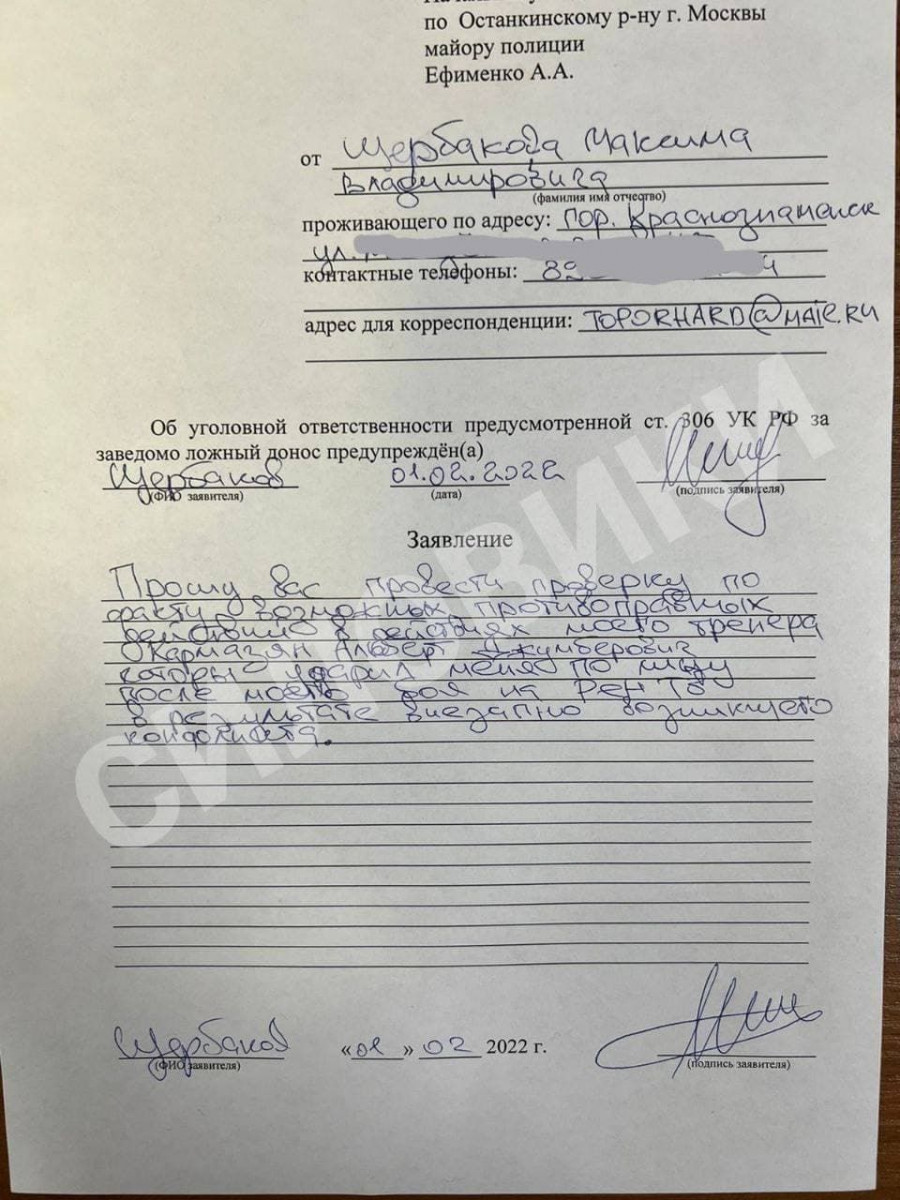 по Останкинскому р-ну г. Москвы
майору полиции
Ефименко А.А.
от Щербакова Максима
Владимировича
(фамилия имя отчество)
проживающего по адресу: гор. Краснознаменск
ул.
контактные телефоны: 89 4
адрес для корреспонденции: TOPORHARD@MAIL.RU
Об уголовной ответственности предусмотренной ст. 306 УК РФ за
заведомо ложный донос предупреждён(а)
Щербаков 01.02.2022
(ФИО заявителя) (дата) (подпись заявителя)
Заявление
Прошу вас провести проверку по
факту возможных противоправных
действий в действиях моего тренера
Окармазян Альберт Джумберович
который ударил меня по лицу
после моего боя на Рен ТВ
в результате внезапно возникшего
конфликта.
Щербаков «01» 02 2022 г.
(ФИО заявителя) (подпись заявителя)
СИЛОВИКИ